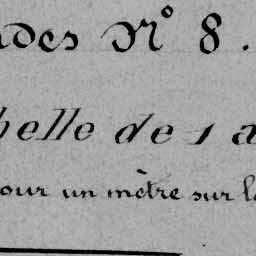 des N° 8.
helle de 1 a
our un mètre sur l